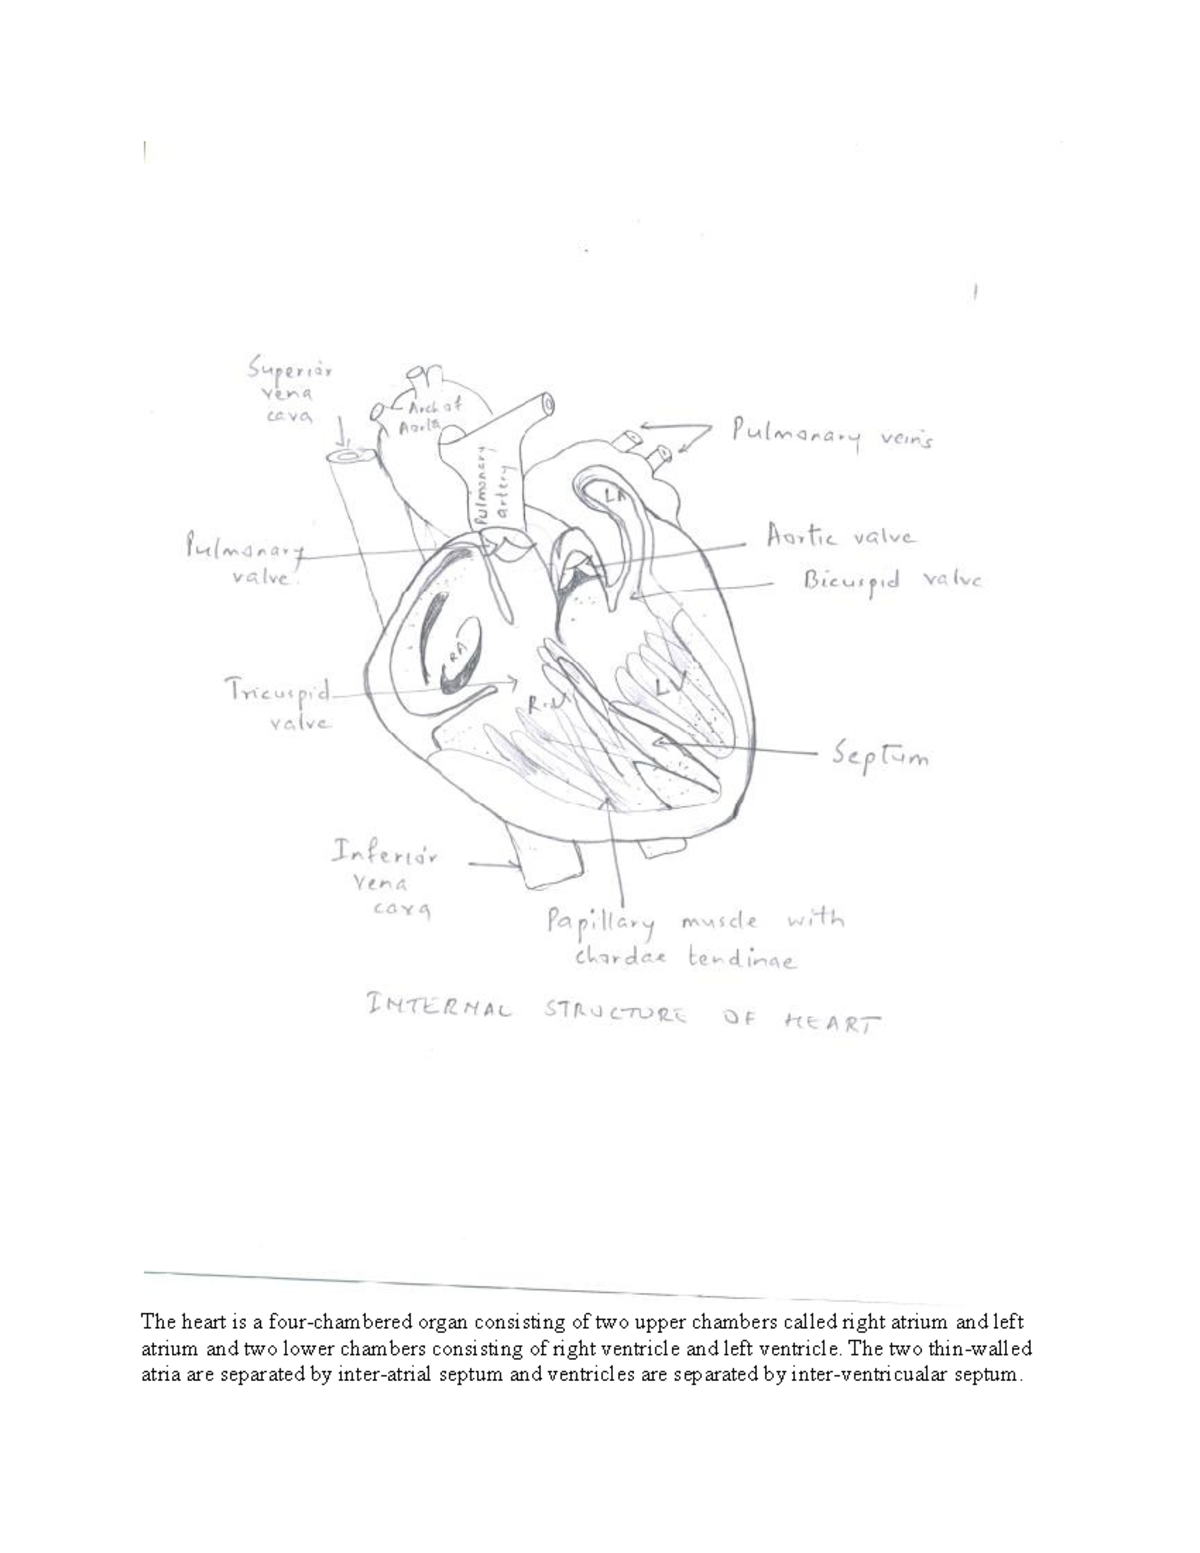 Superior
vena
cava
Arch of
Aorta
Pulmonary
artery
Pulmonary veins
LA
Pulmonary
valve.
Aortic valve
Bicuspid valve
RA
Tricuspid
valve
R.V
LV
Septum
Inferior
Vena
cava
Papillary muscle with
chordae tendinae
INTERNAL STRUCTURE OF HEART
The heart is a four-chambered organ consisting of two upper chambers called right atrium and left
atrium and two lower chambers consisting of right ventricle and left ventricle. The two thin-walled
atria are separated by inter-atrial septum and ventricles are separated by inter-ventricualar septum.